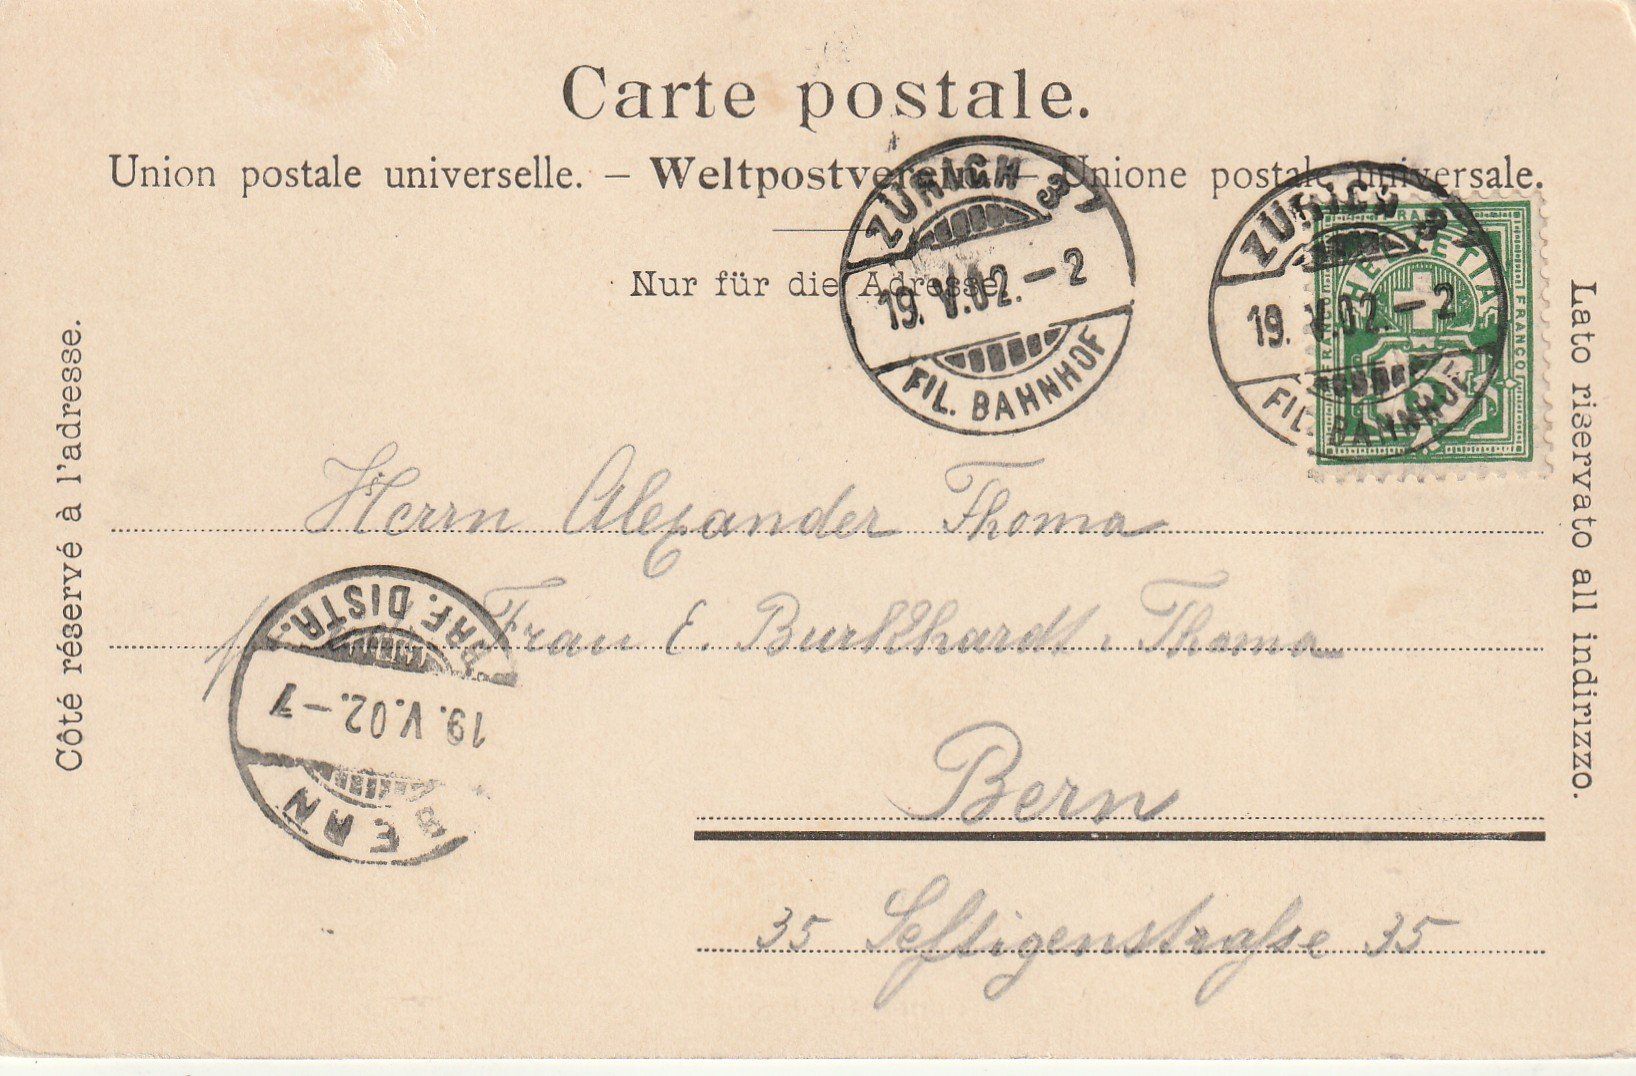 Carte postale.
Union postale universelle. – Weltpostverein – Unione postale universale.
Nur für die Adresse.
Côté réservé à l'adresse.
Lato riservato all indirizzo.
ZÜRICH 3
19. V.02.–2
FIL. BAHNHOF
ZÜRICH 3
19. V.02.–2
FIL. BAHNHOF
HELVETIA
FRANCO
FRANCO
FRANCO
5
Herrn Alexander Thoma
Frau E. Burkhardt-Thoma
Bern
35 Seftigenstraße 35
BERN
19. V.02.–7
BRF. DISTR.